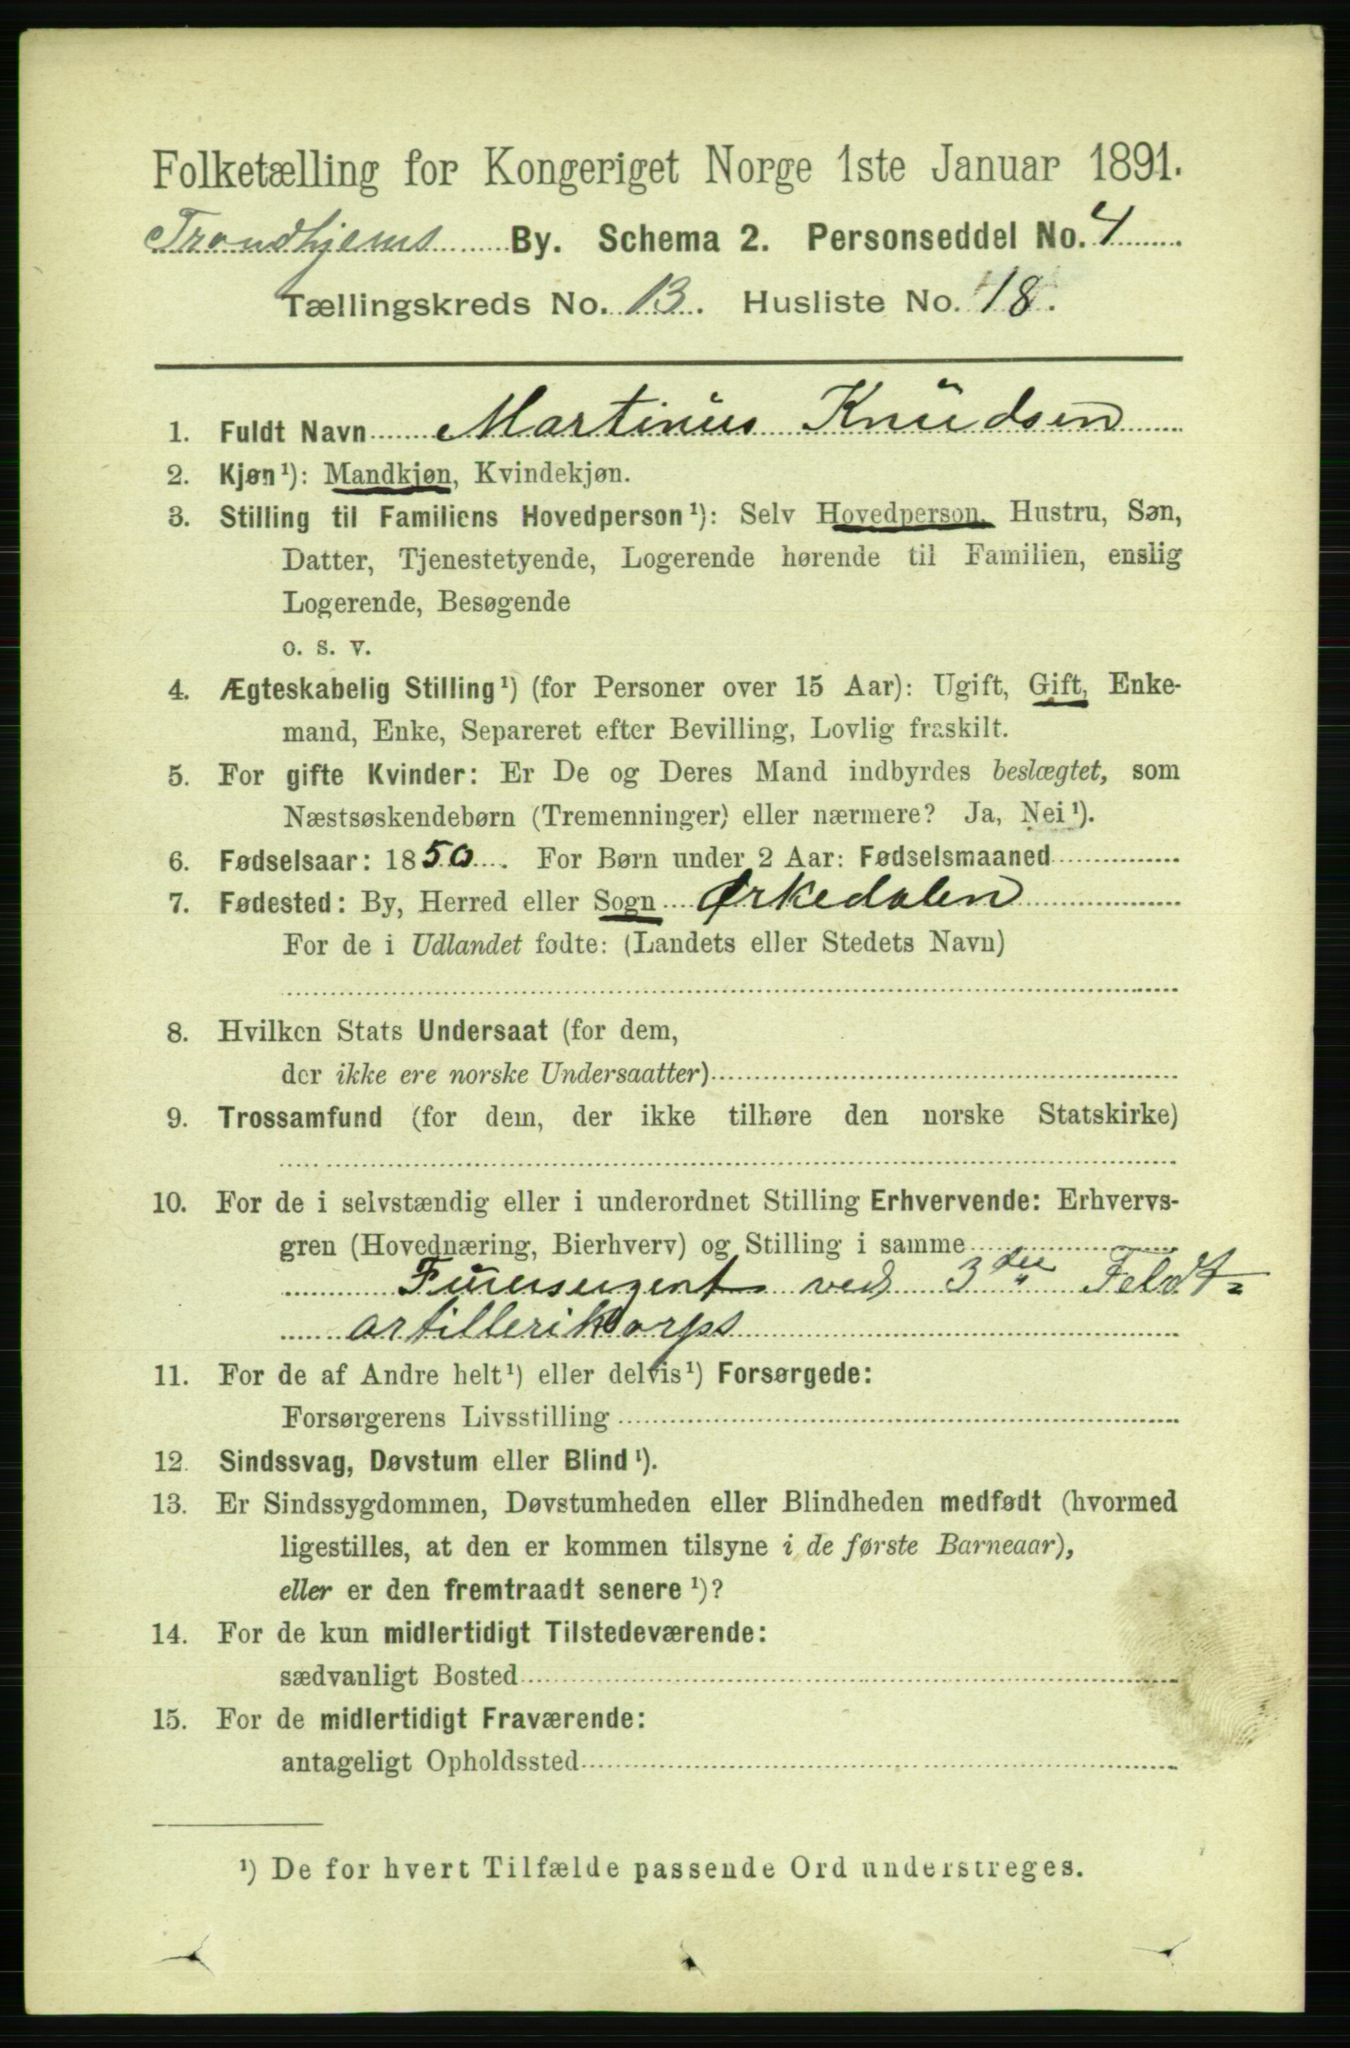 Folketælling for Kongeriget Norge 1ste Januar 1891.
Trondhjems By. Schema 2. Personseddel No. 4
Tællingskreds No. 13. Husliste No. 18.
1. Fuldt Navn Martinius Knudsen
2. Kjøn¹): Mandkjøn, Kvindekjøn.
3. Stilling til Familiens Hovedperson¹): Selv Hovedperson, Hustru, Søn,
Datter, Tjenestetyende, Logerende hørende til Familien, enslig
Logerende, Besøgende
o. s. v.
4. Ægteskabelig Stilling¹) (for Personer over 15 Aar): Ugift, Gift, Enke-
mand, Enke, Separeret efter Bevilling, Lovlig fraskilt.
5. For gifte Kvinder: Er De og Deres Mand indbyrdes beslægtet, som
Næstsøskendebørn (Tremenninger) eller nærmere? Ja, Nei¹).
6. Fødselsaar: 1850. For Børn under 2 Aar: Fødselsmaaned
7. Fødested: By, Herred eller Sogn Ørkedalen
For de i Udlandet fødte: (Landets eller Stedets Navn)
8. Hvilken Stats Undersaat (for dem,
der ikke ere norske Undersaatter)
9. Trossamfund (for dem, der ikke tilhøre den norske Statskirke)
10. For de i selvstændig eller i underordnet Stilling Erhvervende: Erhvervs-
gren (Hovednæring, Bierhverv) og Stilling i samme
ved 3die Feldt-
artillerikorps
11. For de af Andre helt¹) eller delvis¹) Forsørgede:
Forsørgerens Livsstilling
12. Sindssvag, Døvstum eller Blind¹).
13. Er Sindssygdommen, Døvstumheden eller Blindheden medfødt (hvormed
ligestilles, at den er kommen tilsyne i de første Barneaar),
eller er den fremtraadt senere¹)?
14. For de kun midlertidigt Tilstedeværende:
sædvanligt Bosted
15. For de midlertidigt Fraværende:
antageligt Opholdssted
¹) De for hvert Tilfælde passende Ord understreges.